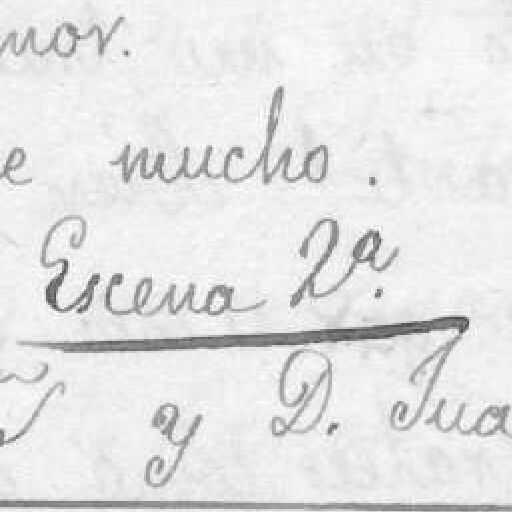 mor.
e mucho.
Escena 2ª.
y D. Jua